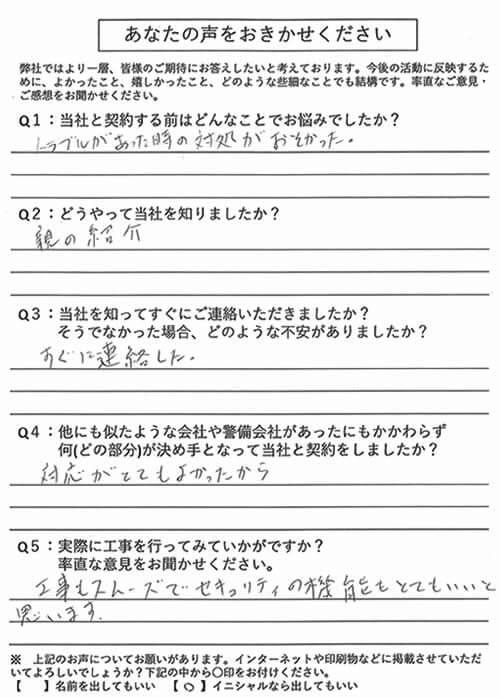 あなたの声をおきかせください
弊社ではより一層、皆様のご期待にお答えしたいと考えております。今後の活動に反映するた
めに、よかったこと、嬉しかったこと、どのような些細なことでも結構です。率直なご意見・
ご感想をお聞かせください。
Q1：当社と契約する前はどんなことでお悩みでしたか？
トラブルがあった時の対処がおそかった。
Q2：どうやって当社を知りましたか？
親の紹介
Q3：当社を知ってすぐにご連絡いただきましたか？
そうでなかった場合、どのような不安がありましたか？
すぐに連絡した。
Q4：他にも似たような会社や警備会社があったにもかかわらず
何(どの部分)が決め手となって当社と契約をしましたか？
対応がとてもよかったから
Q5：実際に工事を行ってみていかがですか？
率直な意見をお聞かせください。
工事もスムーズでセキュリティの機能もとてもいいと
思います。
※ 上記のお声についてお願いがあります。インターネットや印刷物などに掲載させていただ
いてよろしいでしょうか？下記の中から〇印をお付けください。
【　】名前を出してもいい 【〇】イニシャルなら出してもいい